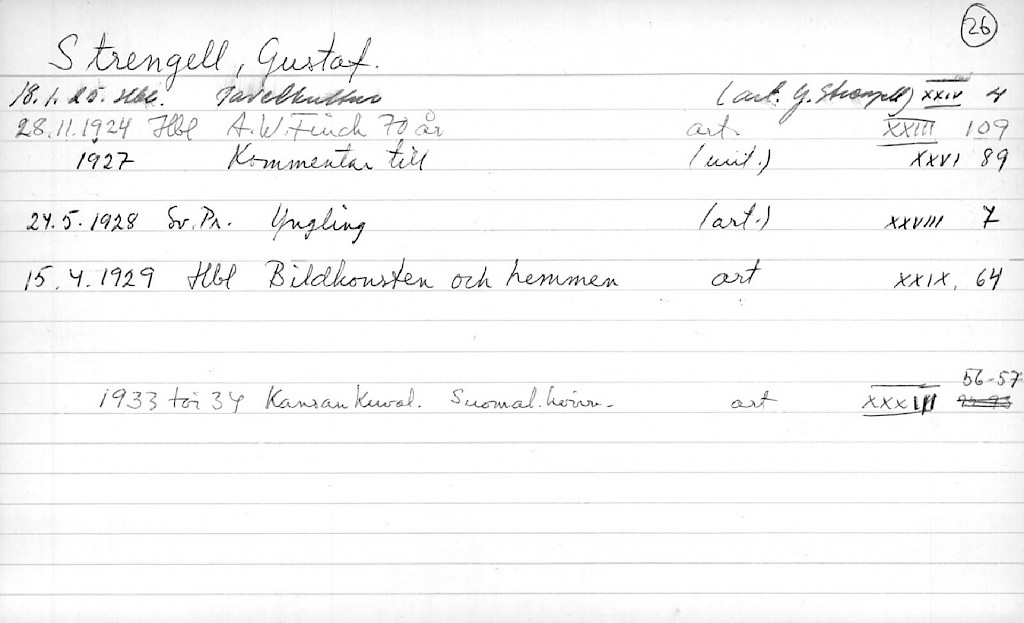 26
Strengell, Gustaf.
18.1.25. Hbl. Tavelkultur (art. G. Strengell) XXIV 4
28.11.1924 Hbl A.W. Finch 70 år art. XXIII 109
1927 Kommentar till XXVI 89
24.5.1928 Sv.Pr. Yngling (art.) XXVIII 7
15.4.1929 Hbl Bildkonsten och hemmen art XXIX, 64
56-57
1933 tai 34 Kansan Kuval. Suomal. art XXXIII